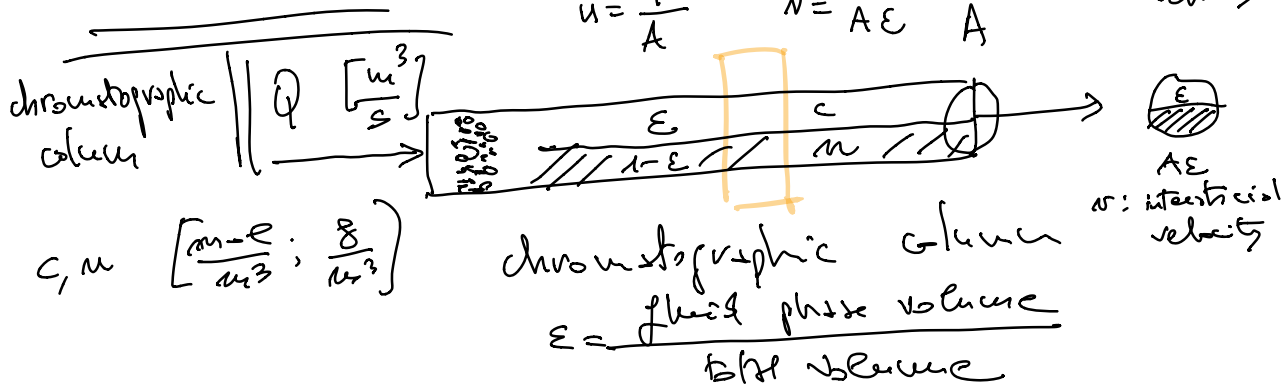 u = A
v = Aε A
chromatographic
column
Q [m³/s]
ε c
1-ε n
ε
Aε
v: interstitial
velocity
c, n [mole/m³ ; g/m³]
chromatographic column
ε = fluid phase volume / total volume